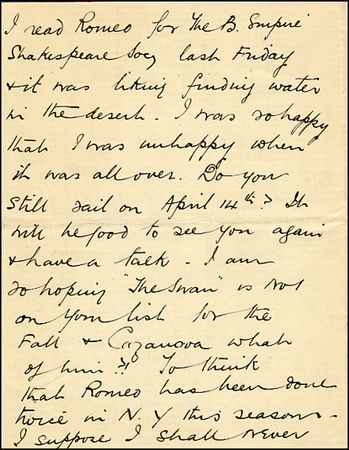 I read Romeo for the B. Empire
Shakespeare Soc, last Friday
& it was like finding water
in the desert. I was so happy
that I was unhappy when
it was all over. Do you
still sail on April 14th? It
will be good to see you again
& have a talk - I am
so hoping "The Swan" is not
on your list for the
Fall & Cazanova what
of him?! To think
that Romeo has been done
twice in N. Y this season -
I suppose I shall never